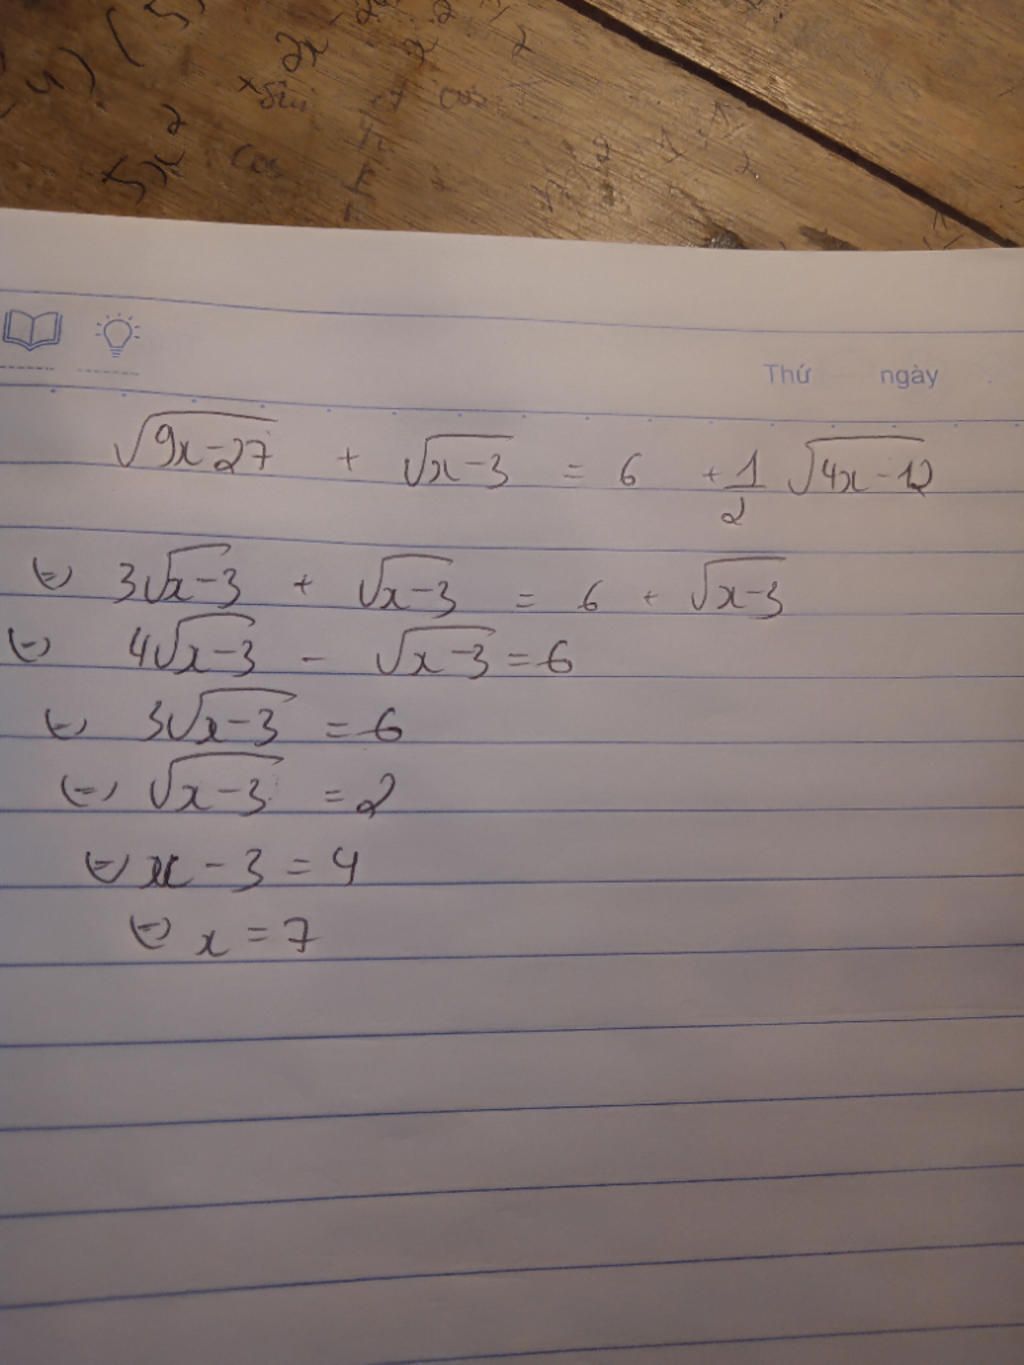 Thứ ngày
√(9x-27) + √(x-3) = 6 + 1/2 √(4x-12)
⇔ 3√(x-3) + √(x-3) = 6 + √(x-3)
⇔ 4√(x-3) - √(x-3) = 6
⇔ 3√(x-3) = 6
⇔ √(x-3) = 2
⇔ x - 3 = 4
⇔ x = 7